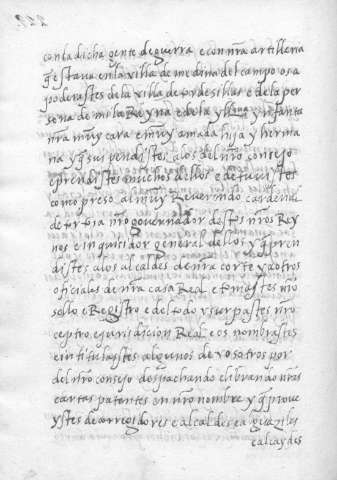 con la dicha gente de guerra e con nr̃a artilleria
q̃ estava en la villa de medina del campo os a
poderastes de la villa de tordesillas e de la per
sona de mi la Reyna e de la yllma ynfanta
nr̃a muy cara e muy amada hija y herma
na y q̃ suspendistes a los del nr̃o consejo
e prendistes muchos dellos e detuvystes
como preso al muy Reverendo cardenal
de tortosa nr̃o governador destos nr̃os Rey
nos e inquisidor general dellos y q̃ pren
distes a los alcaldes de nr̃a corte y a otros
oficiales de nr̃a casa Real e tomastes nr̃o
sello e Registro e del todo usurpastes nr̃o
ceptro e juridicion Real e os nombrastes
e intitulastes algunos de vosotros por
del nr̃o consejo despachando e librando nr̃as
cartas patentes en nr̃o nombre y q̃ prove
ystes de corregidores e alcaldes e alguaziles
e alcaydes